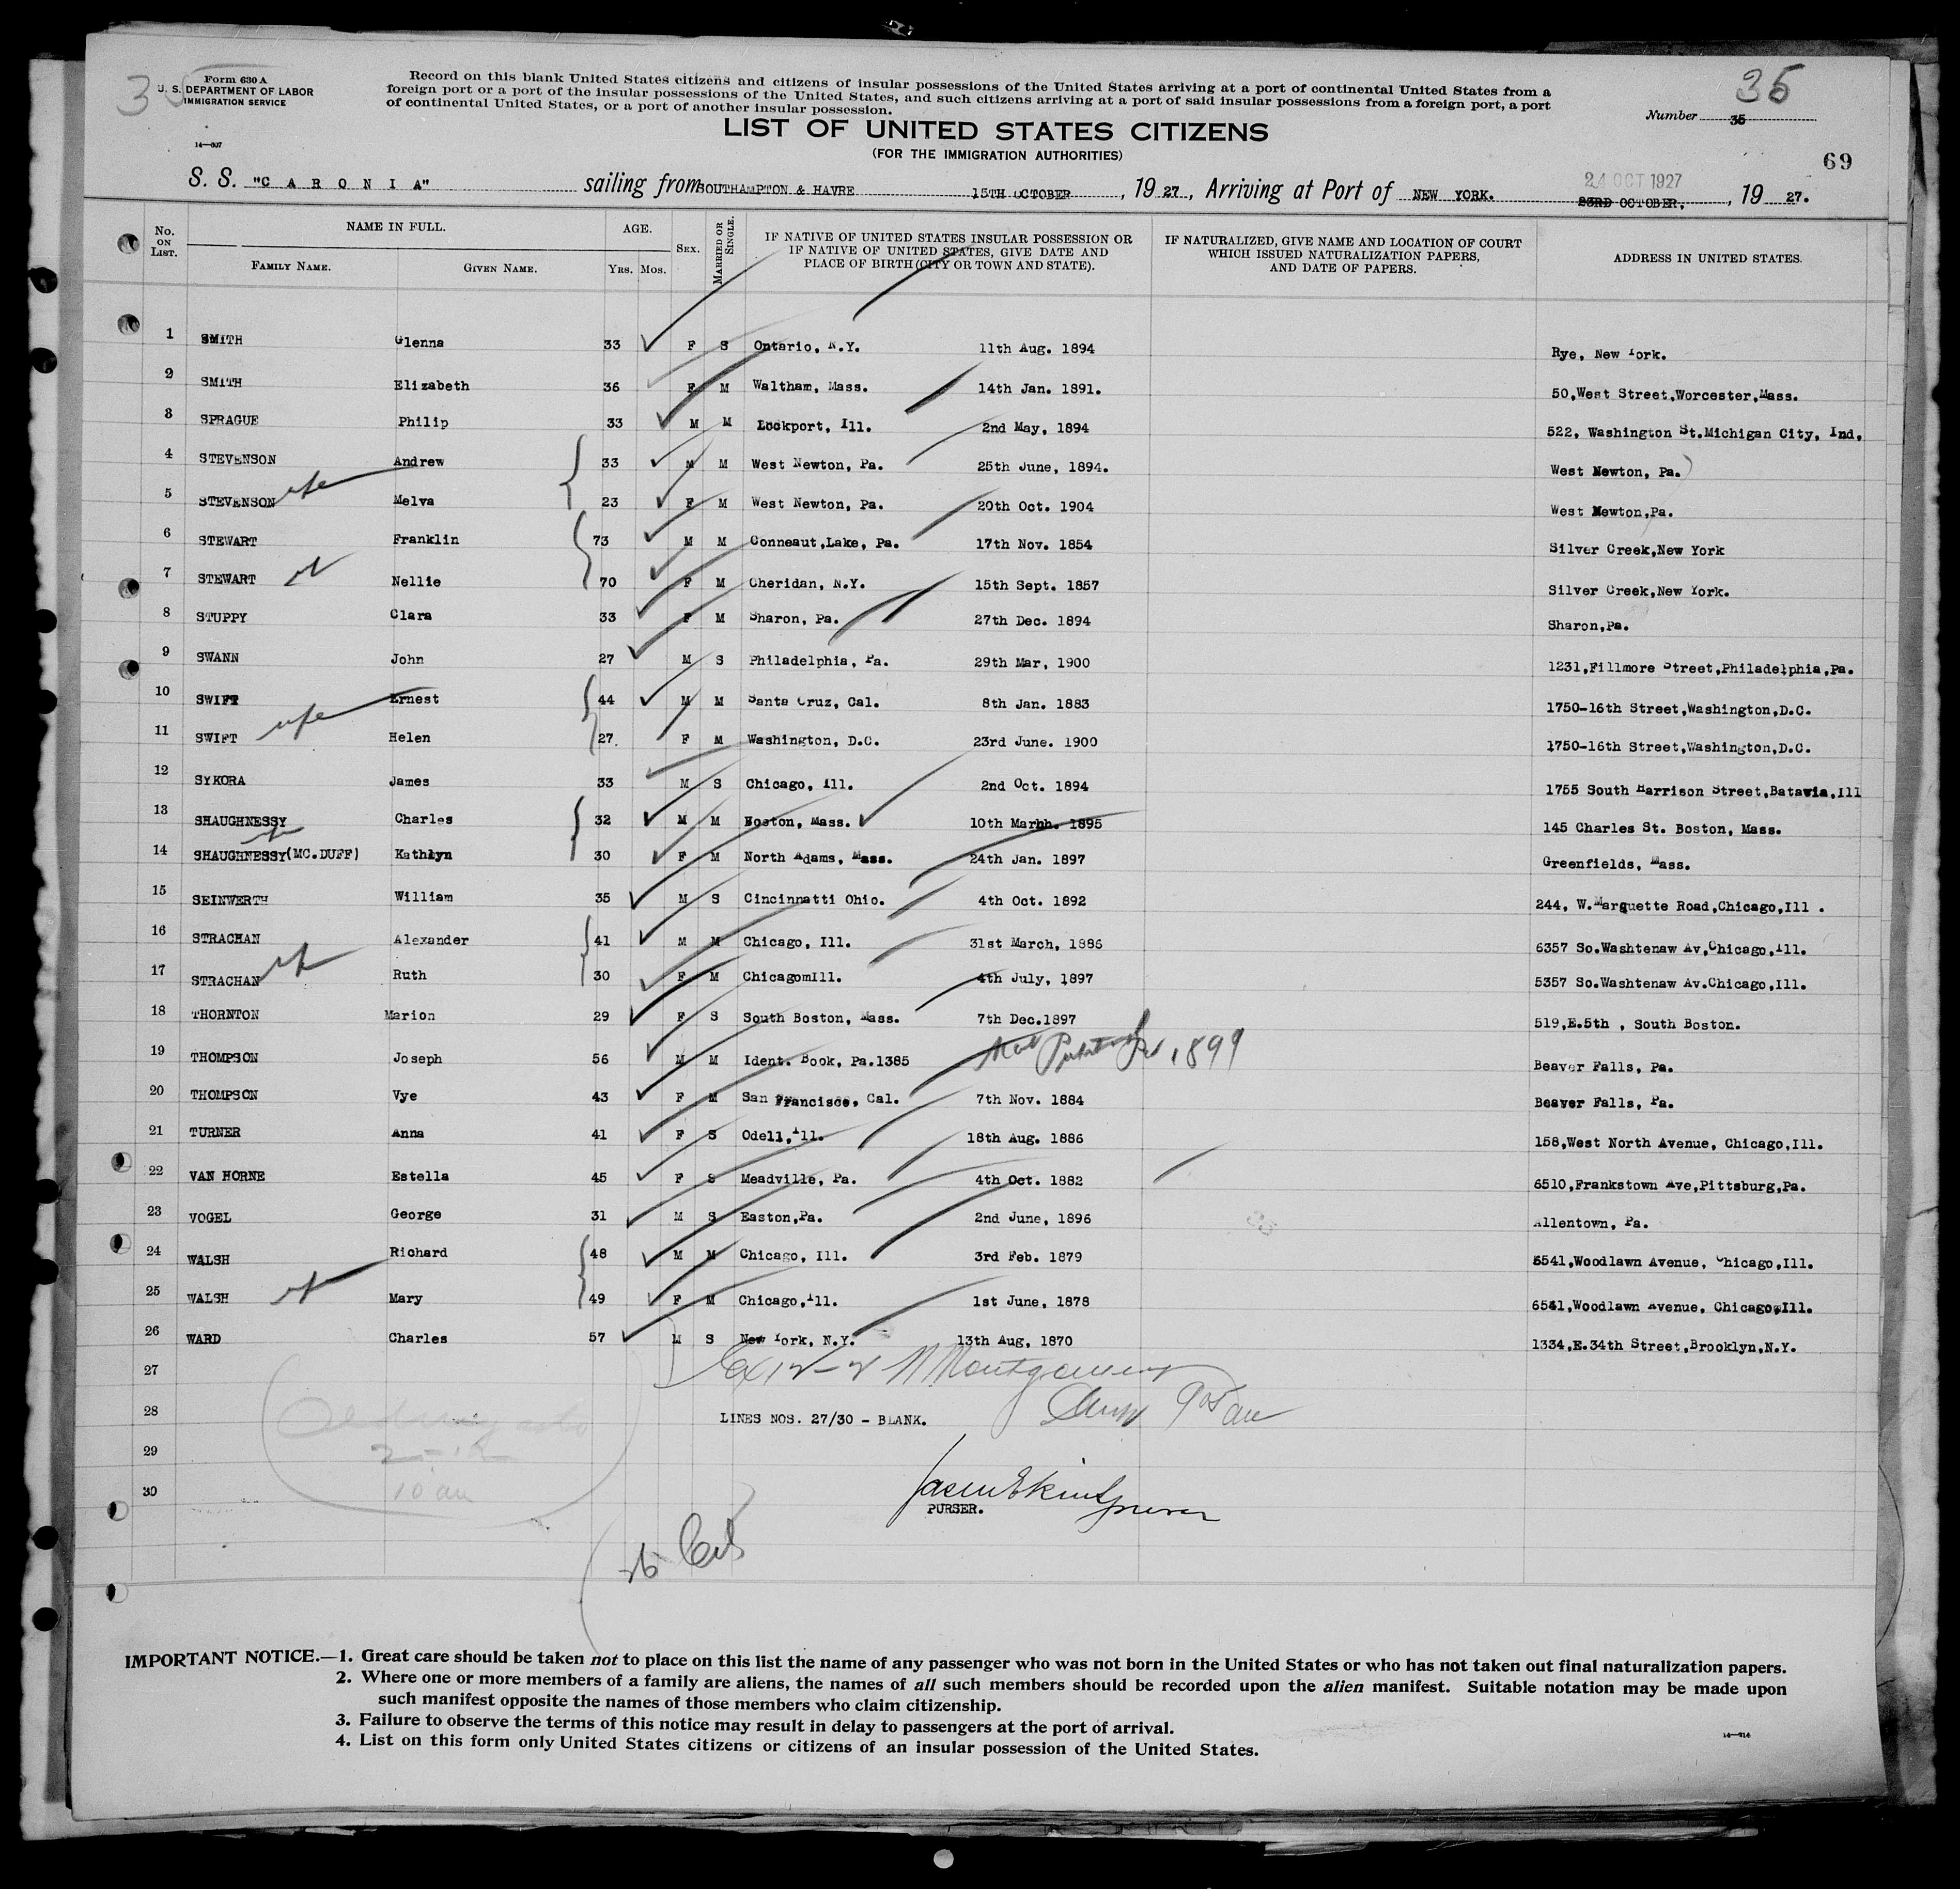 3
Form 630 A
U. S. DEPARTMENT OF LABOR
IMMIGRATION SERVICE
14—307
Record on this blank United States citizens and citizens of insular possessions of the United States arriving at a port of continental United States from a
foreign port or a port of the insular possessions of the United States, and such citizens arriving at a port of said insular possessions from a foreign port, a port
of continental United States, or a port of another insular possession.
35
Number 35
LIST OF UNITED STATES CITIZENS
(FOR THE IMMIGRATION AUTHORITIES)
69
S. S. "C A R O N I A" sailing from SOUTHAMPTON & HAVRE 15TH OCTOBER, 19 27, Arriving at Port of NEW YORK. 24 OCT 1927 23RD OCTOBER, 19 27.
No. ON LIST. NAME IN FULL. FAMILY NAME. GIVEN NAME. AGE. YRS. MOS. SEX. MARRIED OR SINGLE. IF NATIVE OF UNITED STATES INSULAR POSSESSION OR IF NATIVE OF UNITED STATES, GIVE DATE AND PLACE OF BIRTH (CITY OR TOWN AND STATE). IF NATURALIZED, GIVE NAME AND LOCATION OF COURT WHICH ISSUED NATURALIZATION PAPERS, AND DATE OF PAPERS. ADDRESS IN UNITED STATES.
1 SMITH Glenna 33 F S Ontario, N.Y. 11th Aug. 1894 Rye, New York.
2 SMITH Elizabeth 36 F M Waltham, Mass. 14th Jan. 1891. 50,West Street,Worcester,Mass.
3 SPRAGUE Philip 33 M M Lockport, Ill. 2nd May, 1894 522, Washington St.Michigan City, Ind.
4 STEVENSON Andrew 33 M M West Newton, Pa. 25th June, 1894. West Newton, Pa.
5 STEVENSON wife Melva 23 F M West Newton, Pa. 20th Oct. 1904 West Newton,Pa.
6 STEWART Franklin 73 M M Conneaut,Lake, Pa. 17th Nov. 1854 Silver Creek,New York
7 STEWART Nellie 70 F M Cheridan, N.Y. 15th Sept. 1857 Silver Creek,New York.
8 STUPPY Clara 33 F M Sharon, Pa. 27th Dec. 1894 Sharon,Pa.
9 SWANN John 27 M S Philadelphia, Pa. 29th Mar, 1900 1231,Fillmore Street,Philadelphia,Pa.
10 SWIFT Ernest 44 M M Santa Cruz, Cal. 8th Jan. 1883 1750-16th Street,Washington,D.C.
11 SWIFT wife Helen 27. F M Washington, D.C. 23rd June. 1900 1750-16th Street,Washington,D.C.
12 SYKORA James 33 M S Chicago, Ill. 2nd Oct. 1894 1755 South Harrison Street,Batavia,Ill
13 SHAUGHNESSY Charles 32 M M Boston, Mass. 10th Marhh. 1895 145 Charles St. Boston, Mass.
14 SHAUGHNESSY(MC.DUFF) Kathlyn 30 F M North Adams, Mass. 24th Jan. 1897 Greenfields, Mass.
15 SEINWERTH William 35 M S Cincinnatti Ohio. 4th Oct. 1892 244, W.Marguette Road,Chicago,Ill .
16 STRACHAN Alexander 41 M M Chicago, Ill. 31st March, 1886 6357 So.Washtenaw Av,Chicago,Ill.
17 STRACHAN Ruth 30 F M ChicagomIll. 4th July, 1897 5357 So.Washtenaw Av.Chicago,Ill.
18 THORNTON Marion 29 F S South Boston, Mass. 7th Dec.1897 519,E.5th , South Boston.
19 THOMPSON Joseph 56 M M Ident. Book, Pa.1385 1899 Beaver Falls, Pa.
20 THOMPSON Vye 43 F M San Francisco, Cal. 7th Nov. 1884 Beaver Falls, Pa.
21 TURNER Anna 41 F S Odell,Ill. 18th Aug. 1886 158,West North Avenue, Chicago,Ill.
22 VAN HORNE Estella 45 F S Meadville, Pa. 4th Oct. 1882 6510,Frankstown Ave,Pittsburg,Pa.
23 VOGEL George 31 M S Easton,Pa. 2nd June, 1896 Allentown, Pa.
24 WALSH Richard 48 M M Chicago, Ill. 3rd Feb. 1879 6541,Woodlawn Avenue, Chicago,Ill.
25 WALSH Mary 49 F M Chicago,Ill. 1st June, 1878 6541,Woodlawn Avenue, Chicago,Ill.
26 WARD Charles 57 M S New York, N.Y. 13th Aug, 1870 1334,E.34th Street,Brooklyn,N.Y.
27 Montgomery
28 LINES NOS. 27/30 - BLANK.
29
30
PURSER.
26
IMPORTANT NOTICE.—1. Great care should be taken not to place on this list the name of any passenger who was not born in the United States or who has not taken out final naturalization papers.
2. Where one or more members of a family are aliens, the names of all such members should be recorded upon the alien manifest. Suitable notation may be made upon
such manifest opposite the names of those members who claim citizenship.
3. Failure to observe the terms of this notice may result in delay to passengers at the port of arrival.
4. List on this form only United States citizens or citizens of an insular possession of the United States.